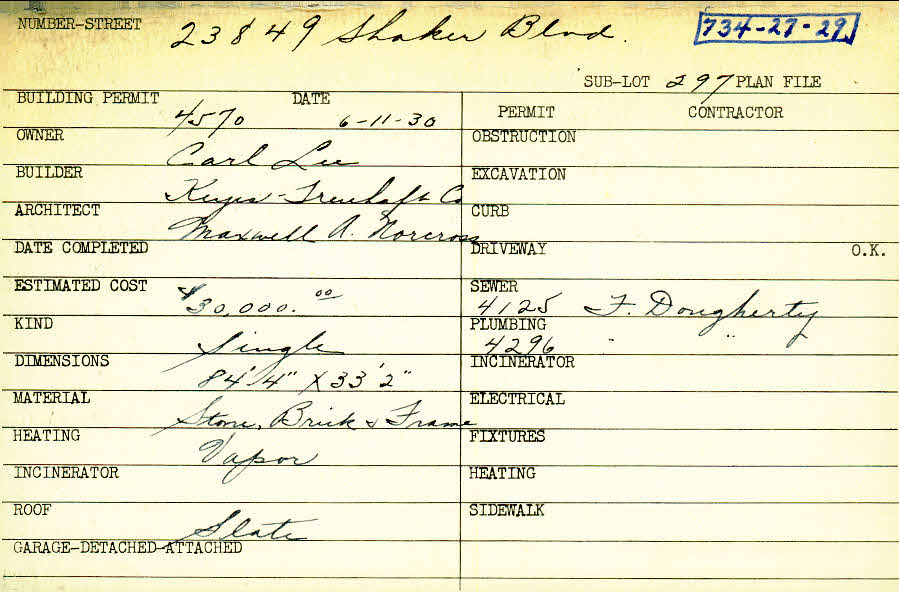 NUMBER-STREET 23849 Shaker Blvd. 734-27-29
SUB-LOT 297 PLAN FILE
BUILDING PERMIT 4570 DATE 6-11-30
PERMIT CONTRACTOR
OWNER Carl Lee
OBSTRUCTION
BUILDER Keyes-Treuhaft Co
EXCAVATION
ARCHITECT Maxwell A. Norcross
CURB
DATE COMPLETED
DRIVEWAY O.K.
ESTIMATED COST $30,000.00
SEWER 4125 F. Dougherty
KIND Single
PLUMBING 4296 " "
DIMENSIONS 84'4" X 33'2"
INCINERATOR
MATERIAL Stone, Brick & Frame
ELECTRICAL
HEATING Vapor
FIXTURES
INCINERATOR
HEATING
ROOF Slate
SIDEWALK
GARAGE-DETACHED-ATTACHED